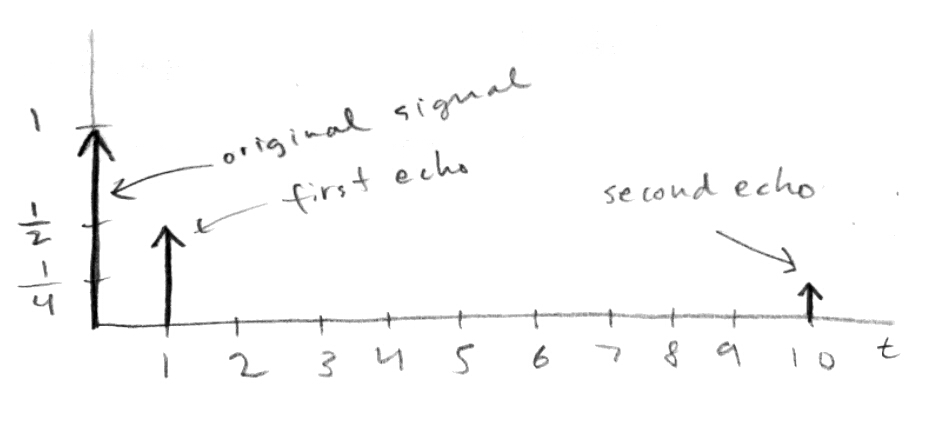 1
original signal
first echo
second echo
1/2
1/4
1 2 3 4 5 6 7 8 9 10 t